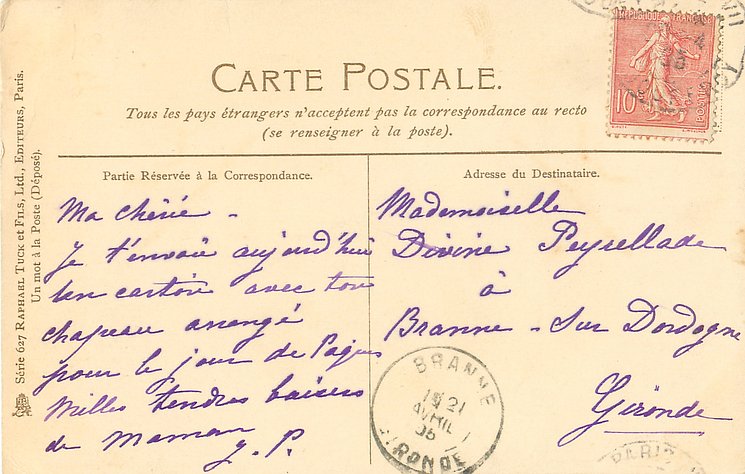 CARTE POSTALE.
Tous les pays étrangers n'acceptent pas la correspondance au recto
(se renseigner à la poste).
Série 627 RAPHAEL TUCK ET FILS, LTD., EDITEURS, Paris.
Un mot à la Poste (Déposé).
Partie Réservée à la Correspondance.
Ma chérie -
Je t'envoie aujourd'hui
un carton avec ton
chapeau arrangé
pour le jour de Pâques
Milles tendres baisers
de Maman
J. P.
Adresse du Destinataire.
Mademoiselle
Divine Peyrellade
à
Branne - sur Dordogne
Gironde
REPUBLIQUE FRANÇAISE
10
POSTES
BRANNE
21
AVRIL
05
GIRONDE
PARIS